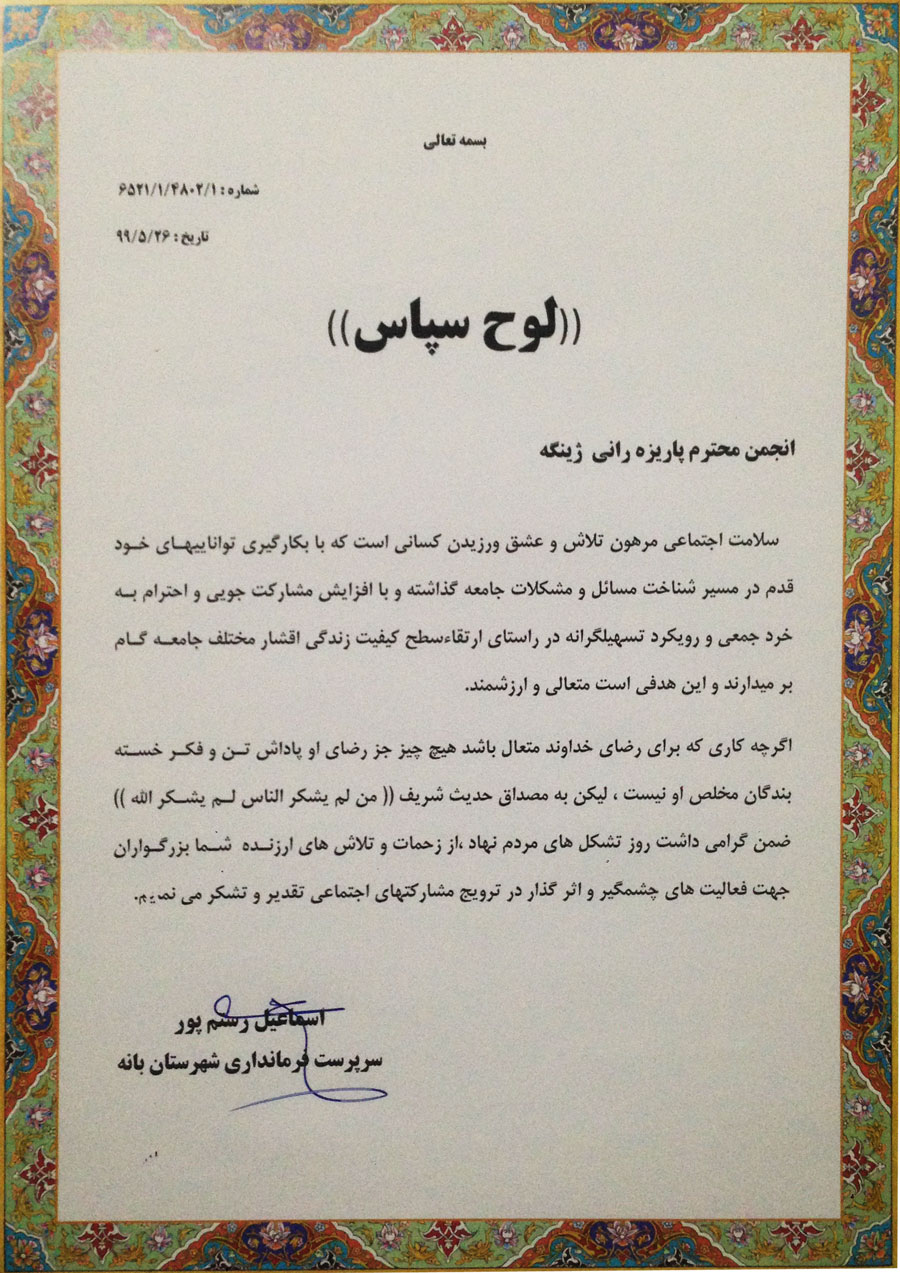 بسمه تعالی
شماره : ۶۵۲۱/۱/۴۸۰۲/۱
تاریخ : ۹۹/۵/۲۶
((لوح سپاس))
انجمن محترم پاریزه رانی ژینگه
سلامت اجتماعی مرهون تلاش و عشق ورزیدن کسانی است که با بکارگیری تواناییهـای خـود
قدم در مسیر شناخت مسائل و مشکلات جامعه گذاشته و با افزایش مشارکت جویی و احترام بـه
خرد جمعی و رویکرد تسهیلگرانه در راستای ارتقاءسطح کیفیت زندگی اقشار مختلف جامعـه گـام
بر میدارند و این هدفی است متعالی و ارزشمند.
اگرچه کاری که برای رضای خداوند متعال باشد هیچ چیز جز رضای او پاداش تـن و فکـر خسـته
بندگان مخلص او نیست ، لیکن به مصداق حدیث شریف (( من لم یشکر الناس لـم یشـکر الله ))
ضمن گرامی داشت روز تشکل های مردم نهاد ،از زحمات و تلاش های ارزنـده شـما بزرگـواران
جهت فعالیت های چشمگیر و اثر گذار در ترویج مشارکتهای اجتماعی تقدیر و تشکر می نمیم.
اسماعیل رستم پور
سرپرست فرمانداری شهرستان بانه